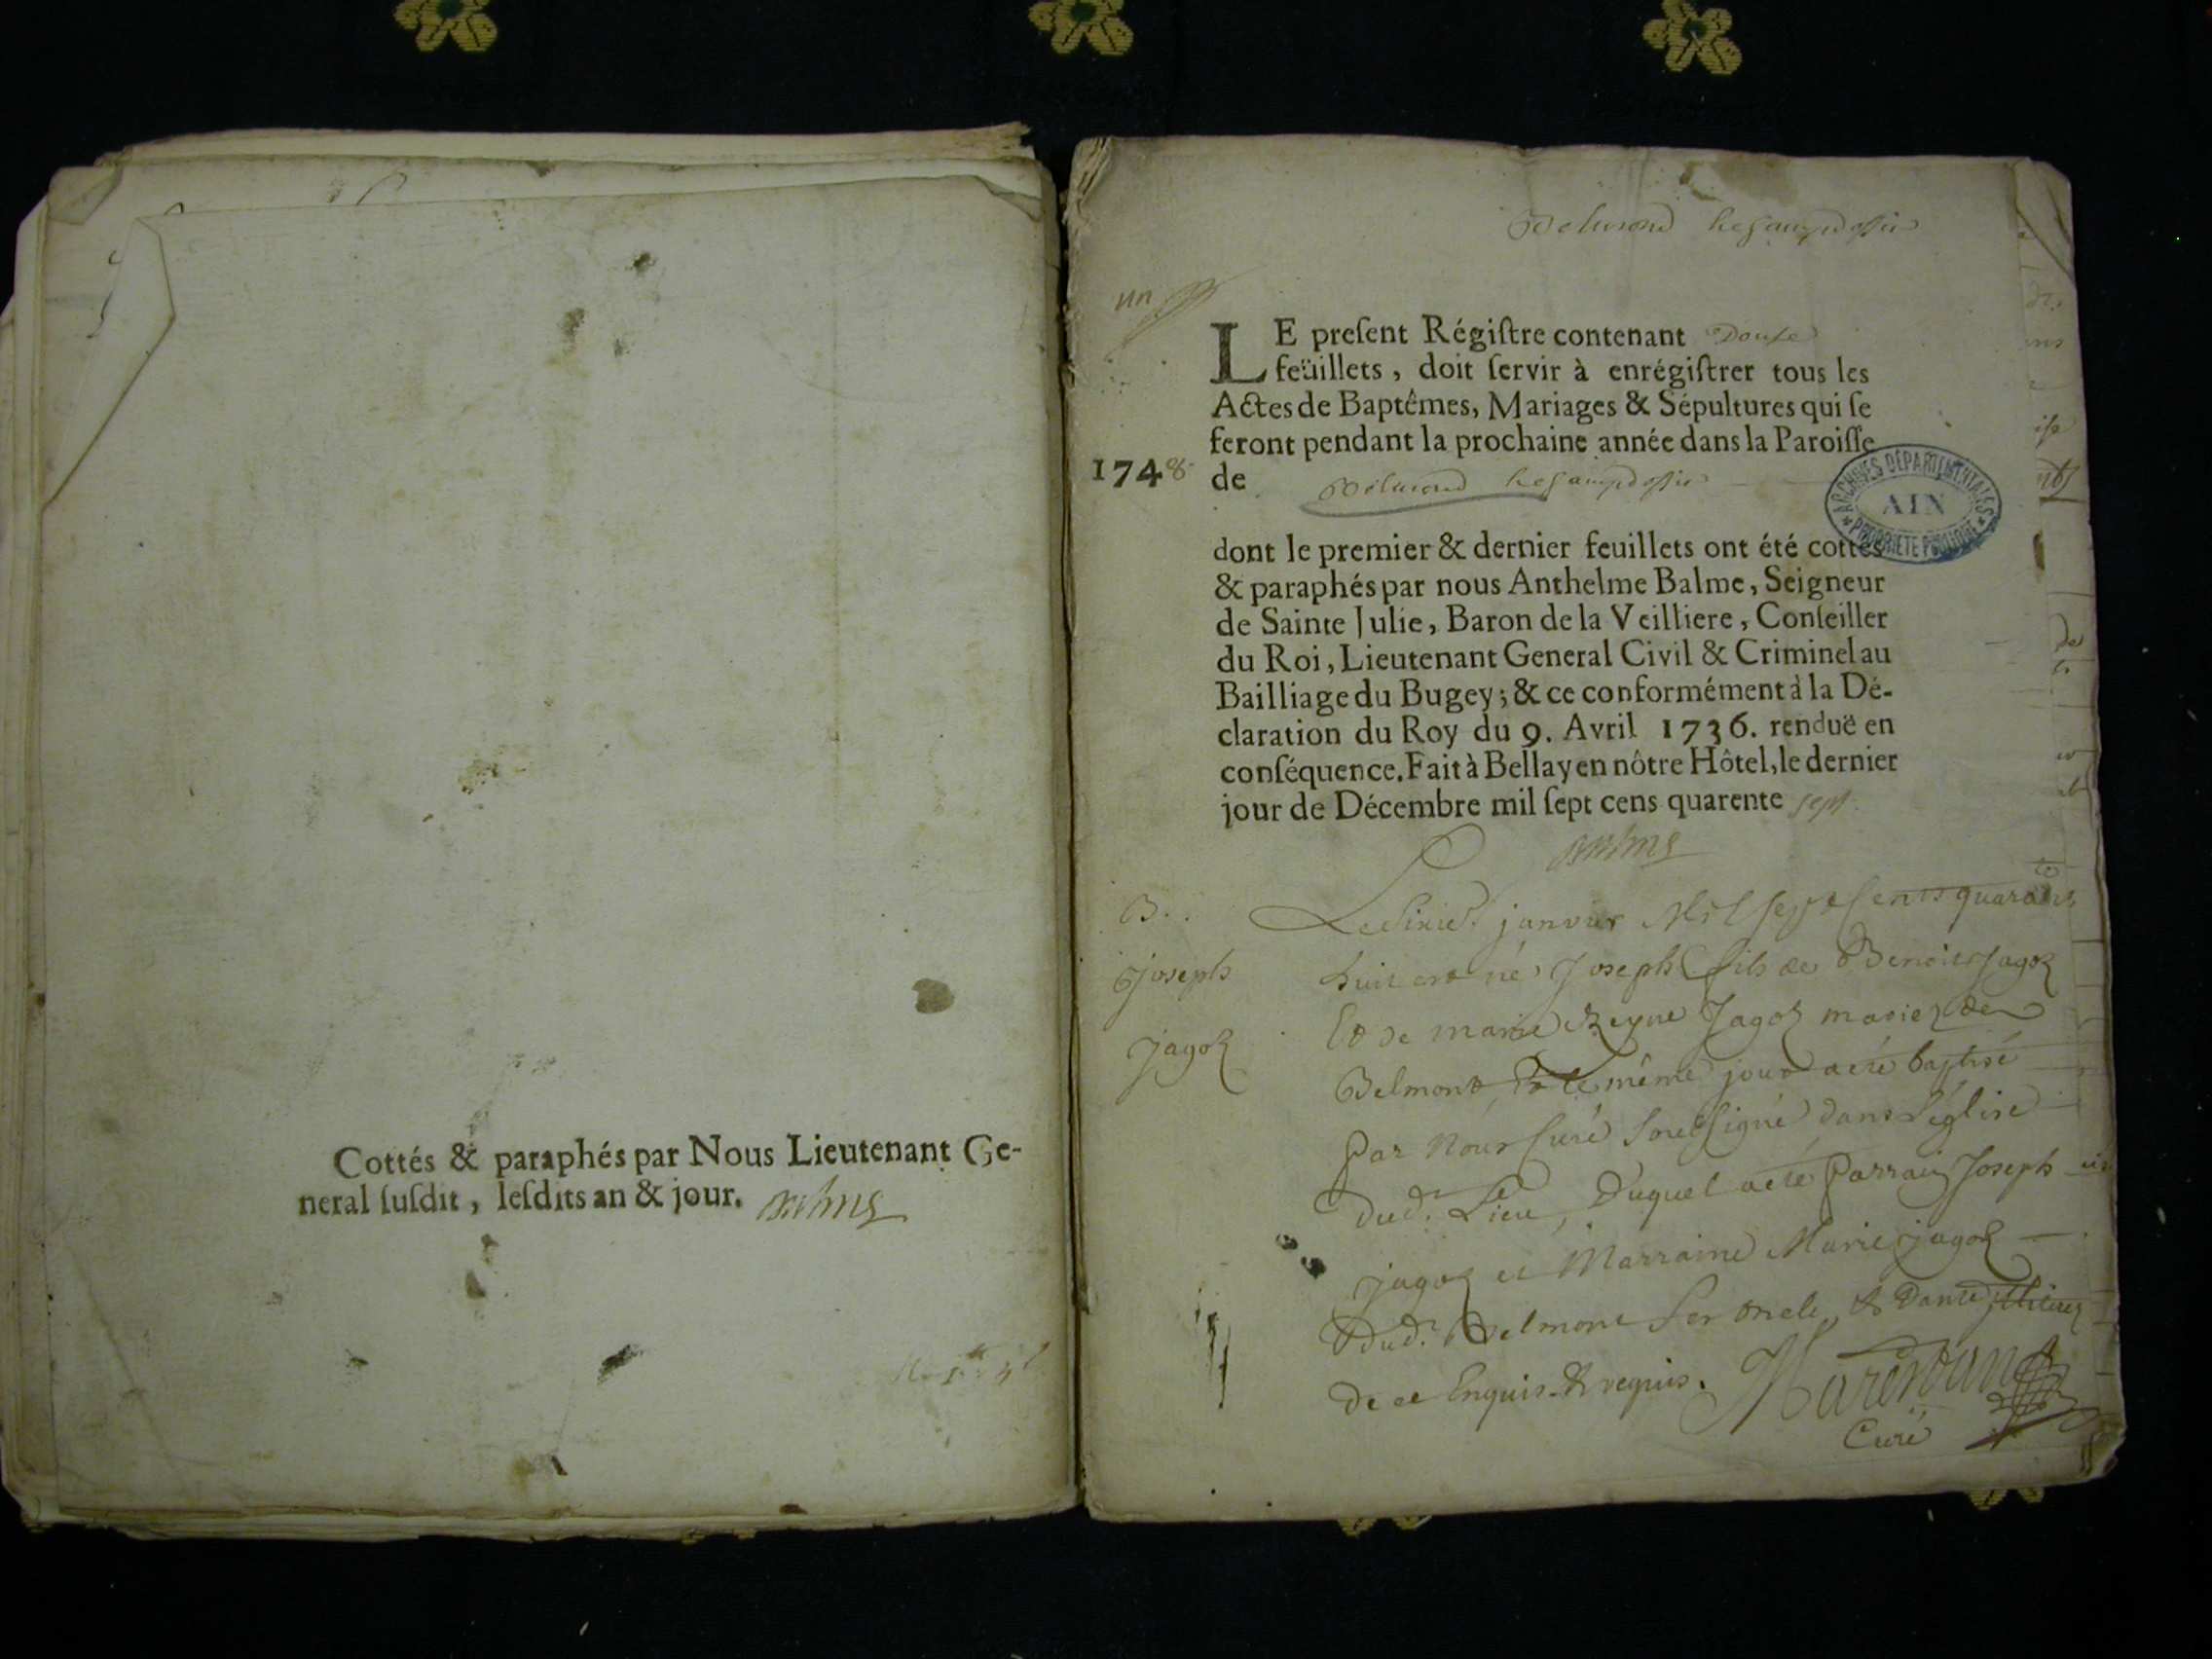 Cottés & paraphés par Nous Lieutenant Ge-
neral ſuſdit, leſdits an & jour.
un
LE preſent Régiſtre contenant Douze
feüillets, doit ſervir à enrégiſtrer tous les
Actes de Baptêmes, Mariages & Sépultures qui ſe
feront pendant la prochaine année dans la Paroiſſe
1748 de
ARCHIVES DÉPARTEMENTALES
AIN
PROPRIÉTÉ PUBLIQUE
dont le premier & dernier feuillets ont été cottés
& paraphés par nous Anthelme Balme, Seigneur
de Sainte Julie, Baron de la Veilliere, Conſeiller
du Roi, Lieutenant General Civil & Criminel au
Bailliage du Bugey; & ce conformément à la Dé-
claration du Roy du 9. Avril 1736. renduë en
conſéquence. Fait à Bellay en nôtre Hôtel, le dernier
jour de Décembre mil ſept cens quarente sept
B.
Joseph
Jagoz
janvier Mil sept Cents quarante
huit est né Joseph fils de Benoit Jagoz
Et de marie Reyne Jagoz mariez de
Belmont, le même jour a eté baptisé
par nous Curé Soussigné dans l'église
dud. Lieu, Duquel a eté Parrain Joseph
jagoz et Marraine Marie jagoz
dud. Belmont Ses oncle &
de ce Enquis & requis.
Curé